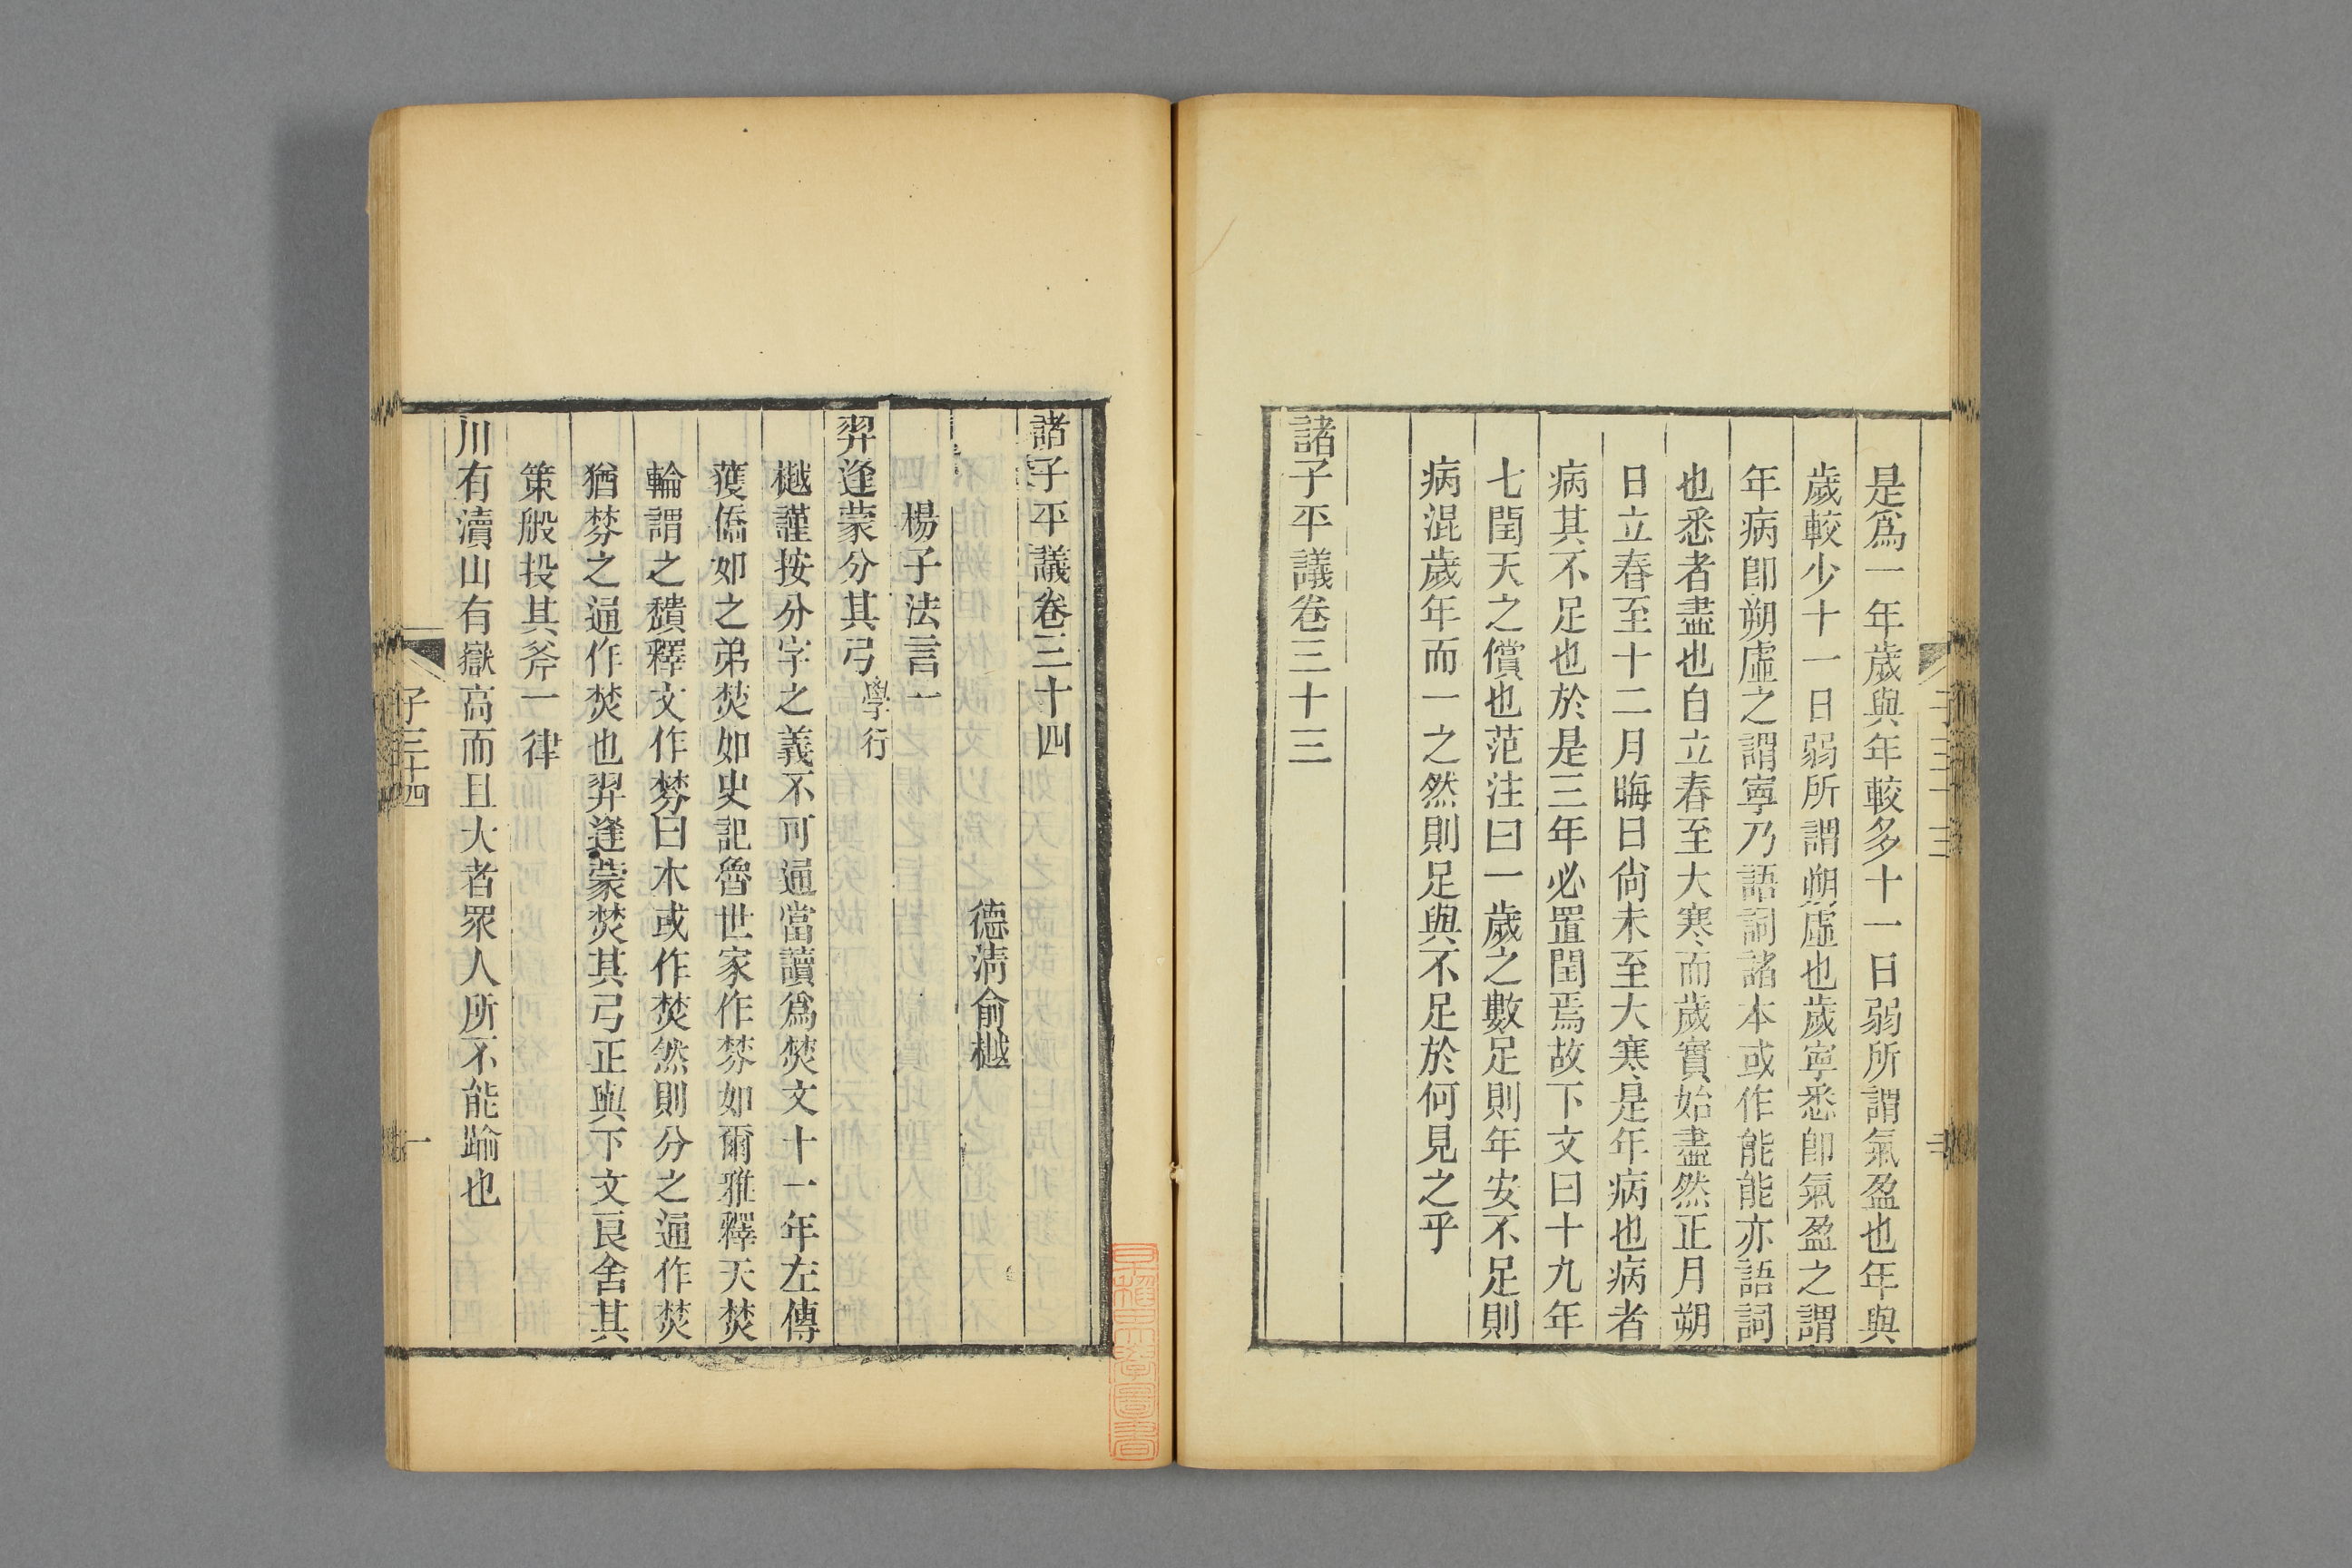 是爲一年歲與年較多十一日弱所謂氣盈也年與
歲較少十一日弱所謂朔虛也歲寧悉卽氣盈之謂
年病卽朔虛之謂寧乃語詞諸本或作能能亦語詞
也悉者盡也自立春至大寒而歲實始盡然正月朔
日立春至十二月晦日尙未至大寒是年病也病者
病其不足也於是三年必置閏焉故下文曰十九年
七閏天之償也范注曰一歲之數足則年安不足則
病混歲年而一之然則足與不足於何見之乎
諸子平議卷三十三
諸子平議卷三十四
德淸俞樾
楊子法言一
羿逢蒙分其弓學行
樾謹按分字之義不可通當讀爲焚文十一年左傳
獲僑如之弟焚如史記魯世家作棼如爾雅釋天焚
輪謂之穨釋文作棼曰本或作焚然則分之通作焚
猶棼之通作焚也羿逢蒙焚其弓正與下文良舍其
策般投其斧一律
川有瀆山有嶽高而且大者眾人所不能踰也
子三十四
一